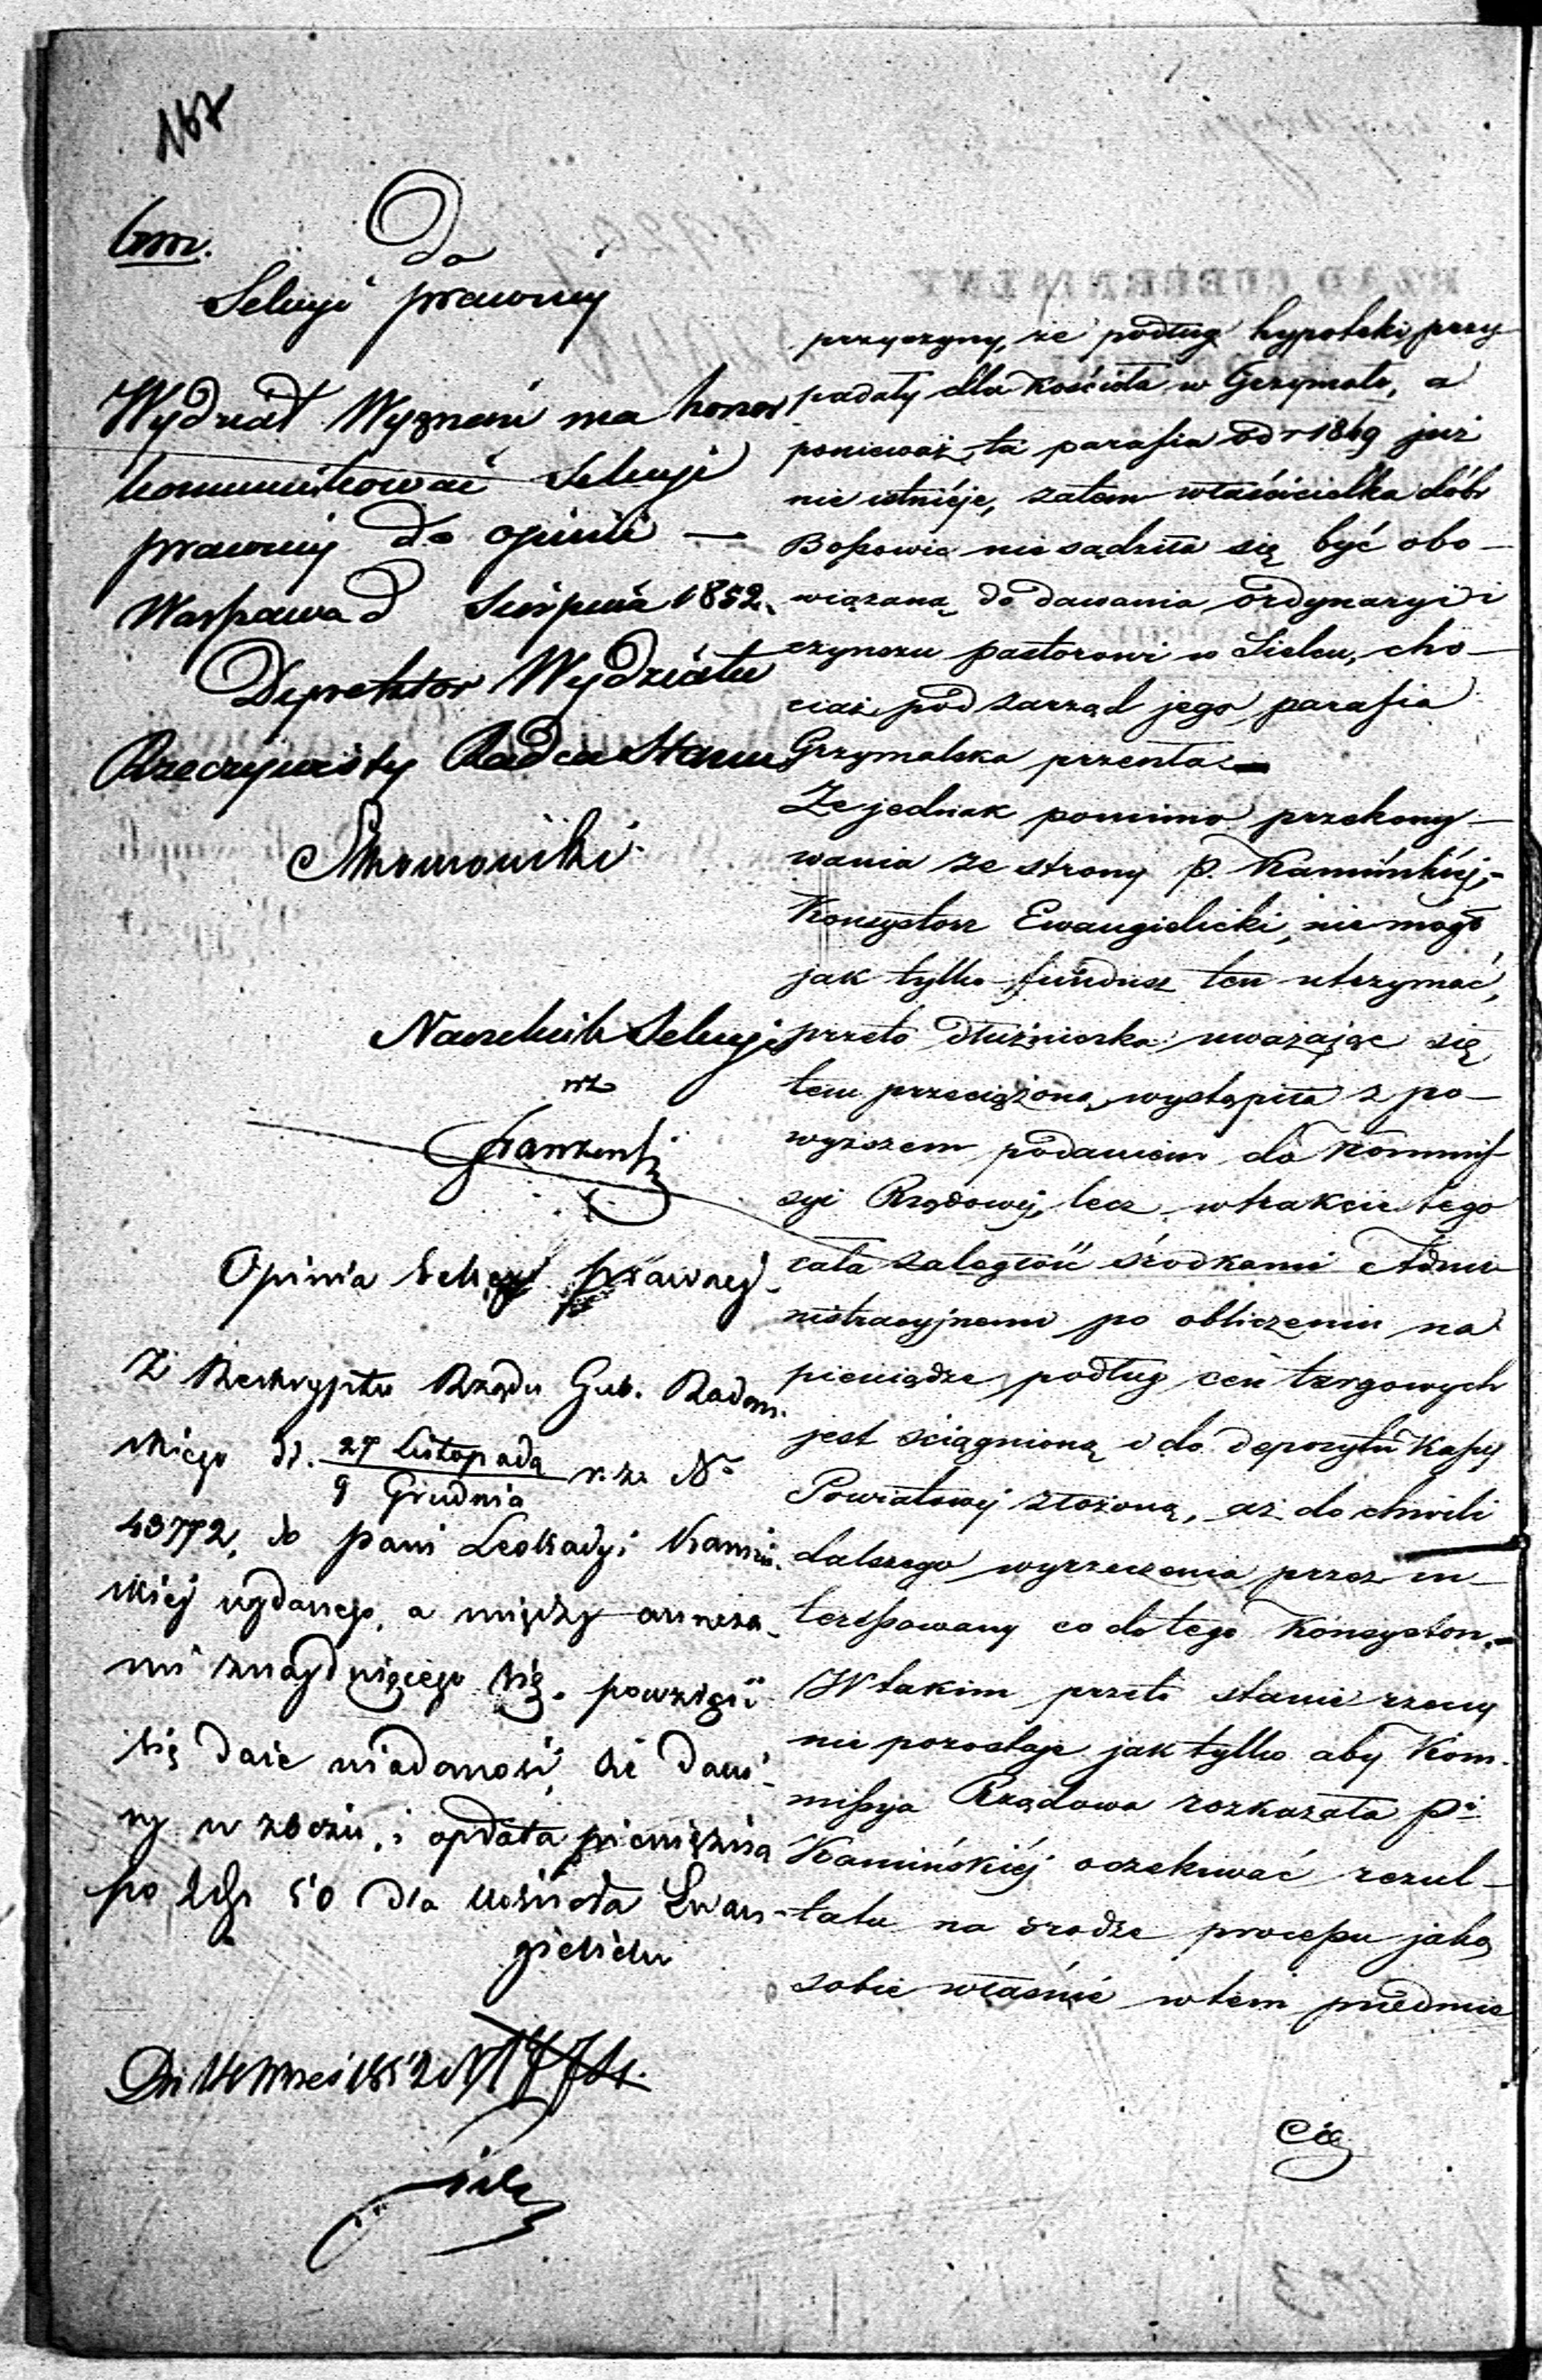 167
Do
Sekcyi prawnej
Wydział Wyznań ma honor
komunikować Sekcyi
prawnej do opinii —
Warszawa d Sierpnia 1852.
Dyrektor Wydziału
Rzeczywisty Radca Stanu
Naczelnik Sekcyi
Opinia Sekcyi prawnej.
Z Reskryptu Rządu Gub. Radom-
skiego d. 27 Listopada
9 Grudnia r. z. No
43772, do pani Leokadyi Kamiń-
skiej wydanego, a między annexa-
mi znajdującego się, powziąść
się daie wiadomość, że dani-
ny w zbożu, i opłata pieniężna
po złp 50 dla kościoła Ewan-
gielicku
przyczyny, że podług hypoteki przy
padały dla kościoła w Grzymale, a
ponieważ ta parafia od r 1849 już
nie istnieje, zatem właścicielka dóbr
Bossowic nie sądziła się być obo-
wiązaną do dawania ordynaryi i
czynszu pastorowi w Sielcu, cho-
ciaż pod zarząd jego parafia
Grzymalska przeszła. —
Że jednak pomimo przekony-
wania ze strony p. Kamińskiéj, -
Konsystorz Ewangielicki, nie mógł
jak tylko fundusz ten utrzymać,
przeto dłużniczka uważając się
tem przeciążoną, wystąpiła z po-
wyższem podaniem do Kommis-
syi Rządowej, lecz w trakcie tego
cała zaległość środkami Admi-
nistracyjnemi po obliczeniu na
pieniądze podług cen targowych
jest ściągnioną i do depozytu Kassy
Powiatowéj złożoną, aż do chwili
dalszego wyrzeczenia przez in-
teressowany co do tego Konsystorz. -
W takim przeto stanie rzeczy
nie pozostaje jak tylko aby Kom-
missya Rządowa rozkazała pi
Kamińskiéj oczekiwać rezul-
tatu na drodze processu jaką
sobie właśnie w tem przedmio
cie